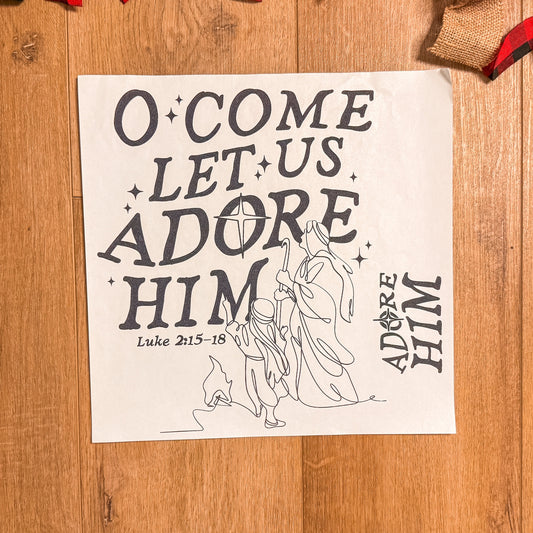 O COME
LET US
ADORE
HIM
Luke 2:15-18
ADORE
HIM